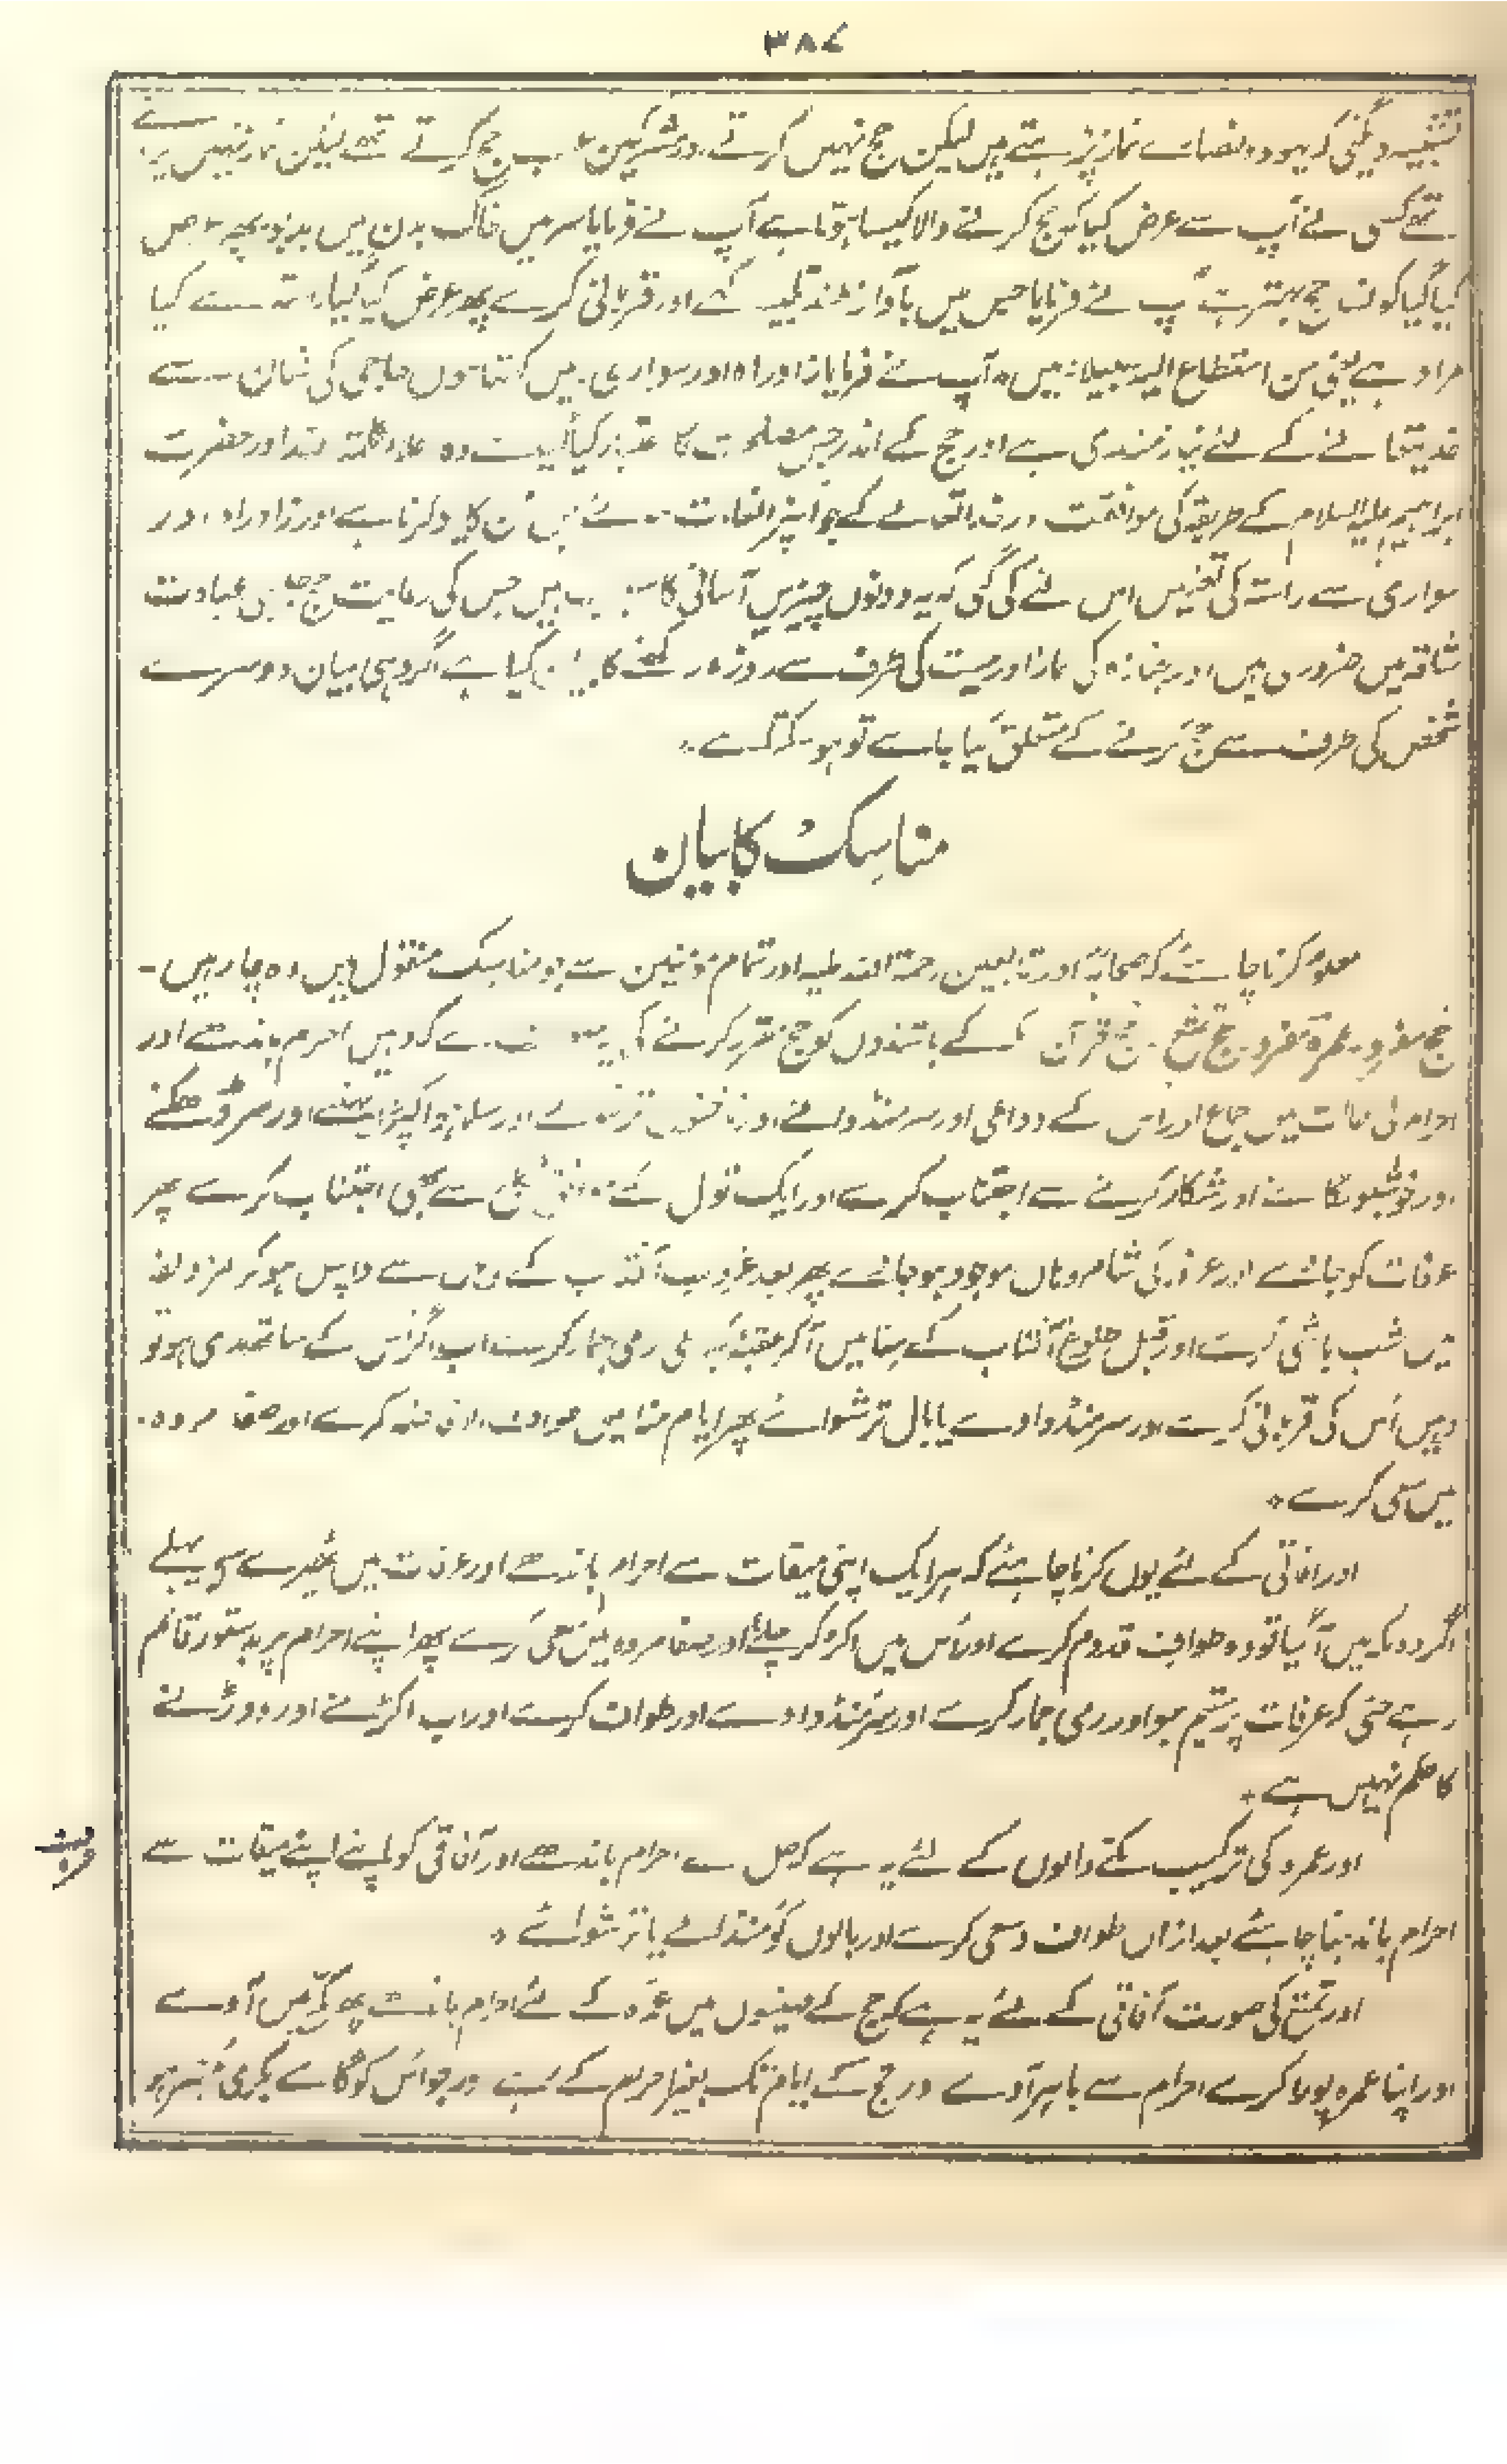 ۳۸۷
تشبیہ دیگئی کہ یہود و نصاریٰ نماز پڑہتے ہیں لیکن حج نہیں کرتے اور مشرکین عرب حج کرتے تھے لیکن نماز نہیں پڑہتے
تھے کسی نے آپ سے عرض کیا کہ حج کرنے والا کیسا ہوتا ہے آپ نے فرمایا سر میں خاک بدن میں بدبو پھر عرض
کیا گیا کونسا حج بہتر ہے آپ نے فرمایا جس میں بآواز بلند تلبیہ کہے اور قربانی کرے پھر عرض کیا گیا راستہ سے کیا
مراد ہے یعنی من استطاع الیہ سبیلا میں آپ نے فرمایا زاد راہ اور سواری۔ میں کہتا ہوں حاجی کی شان سے
خدیتعالےٰ کے لئے نیازمندی ہے اور حج کے اندر جس مصلحت کا اعتبار کیا گیا ہے وہ اعلاء کلمۃ اللہ اور حضرت
ابراہیم علیہ السلام کے طریقہ کی موافقت اور خدا تعالےٰ کے جو اُنپر انعامات ہوئے ہیں اُن کا یاد کرنا ہے اور زاد راہ اور
سواری سے راستہ کی تعیین اس لئے کی گئی کہ یہ دونوں چیزیں آسانی کا سبب ہیں جس کی رعایت حج جیسی عبادت
شاقہ میں ضروری ہیں اور جنازہ کی نماز اور میت کی طرف سے روزہ رکھنے کا بیان کیا ہے اگر وہی بیان دوسرے
شخص کی طرف سے حج کرنے کے متعلق کیا جاے تو ہو سکتا ہے۔
مناسک کا بیان
معلوم کرنا چاہئے کہ صحابہ اور تابعین رحمۃ اللہ علیہ اور تمام مؤمنین سے جو مناسک منقول ہیں وہ چار ہیں۔
حج مفرد۔ عمرۃ مفرد۔ حج تمتع۔ حج قرآن مکہ کے باشندوں کو حج مقرر کرنے کی یہ کہ وہیں احرام باندھے اور
احرام کی حالت میں جماع اور اس کے دواعی اور سر منڈوانے اور ناخنوں ترشوانے اور سلا ہوا کپڑا پہننے اور سر ڈھکنے
اور خوشبو لگانے اور شکار کرنے سے اجتناب کرے اور ایک قول کے موافق نکاح سے بھی اجتناب کرے پھر
عرفات کو جائے اور عرفہ کی شام وہاں موجود ہو جائے پھر بعد غروب آفتاب کے وہاں سے واپس ہو کر مزدلفہ
میں شب باشی کرے اور قبل طلوع آفتاب کے منا میں آکر عقبہ کبریٰ کی رمی جمار کرے اب اگر اس کے ساتھ ہدی ہو تو
وہیں اُس کی قربانی کرے اور سر منڈواوے یا بال ترشوائے پھر ایام منا میں طواف افاضہ کرے اور صفا مروہ
میں سعی کرے۔
اور آفاقی کے لئے یوں کرنا چاہئے کہ ہر ایک اپنی میقات سے احرام باندھے اور عرفات میں ٹھیرے سی پہلے
اگر وہ مکہ میں آگیا تو وہ طواف قدوم کرے اور اُس میں اکڑ کر چلے اور صفا مروہ میں سعی کرے پھر اپنے احرام پر بدستور قائم
رہے حتیٰ کہ عرفات پر مقیم ہو اور رمی جمار کرے اور سر منڈواوے اور طواف کرے اور اب اکڑنے اور دوڑنے
کا حکم نہیں ہے۔
اور عمرہ کی ترکیب مکے والوں کے لئے یہ ہے کہ حل سے احرام باندھے اور آفاقی کو اپنے اپنے میقات سے
احرام باندہنا چاہئے بعد ازاں طواف و سعی کرے اور بالوں کو منڈائے یا ترشوائے۔
اور تمتع کی صورت آفاقی کے لئے یہ ہے کہ حج کے مہینوں میں عمرہ کے لئے احرام باندھے پھر مکہ میں آوے
اور اپنا عمرہ پورا کرے احرام سے باہر آوے اور حج کے ایام تک بغیر احرام کے رہے اور جو اس کو گاے بکری میسر ہو